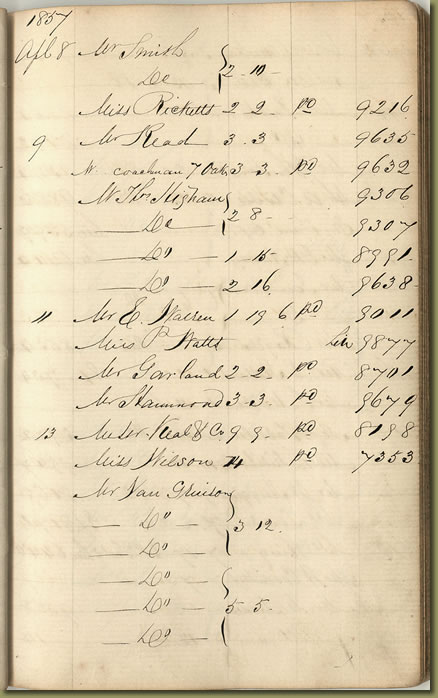 1857
Apl 8 Mr Smith
Do 2 10 -
Miss Ricketts 2 2 pd 9216
9 Mr Read 3 . 3 9635
coachman 7 Oak 3 3 pd 9632
Mr Thos Higham 9306
Do 2 8 - 9307
Do 1 15 8991
Do 2 16 9638
11 Mr E. Warren 1 19 6 pd 9011
Miss P Watts 9877
Mr Garland 2 2 pd 8701
Mr Hammond 3 - 3 - pd 9679
13 Messr Neal & Co 9 9 - pd 8198
Miss Wilson 14 pd 7353
Mr Van
— Do — 3 12.
— Do —
— Do —
— Do — 5 5 -
— Do —